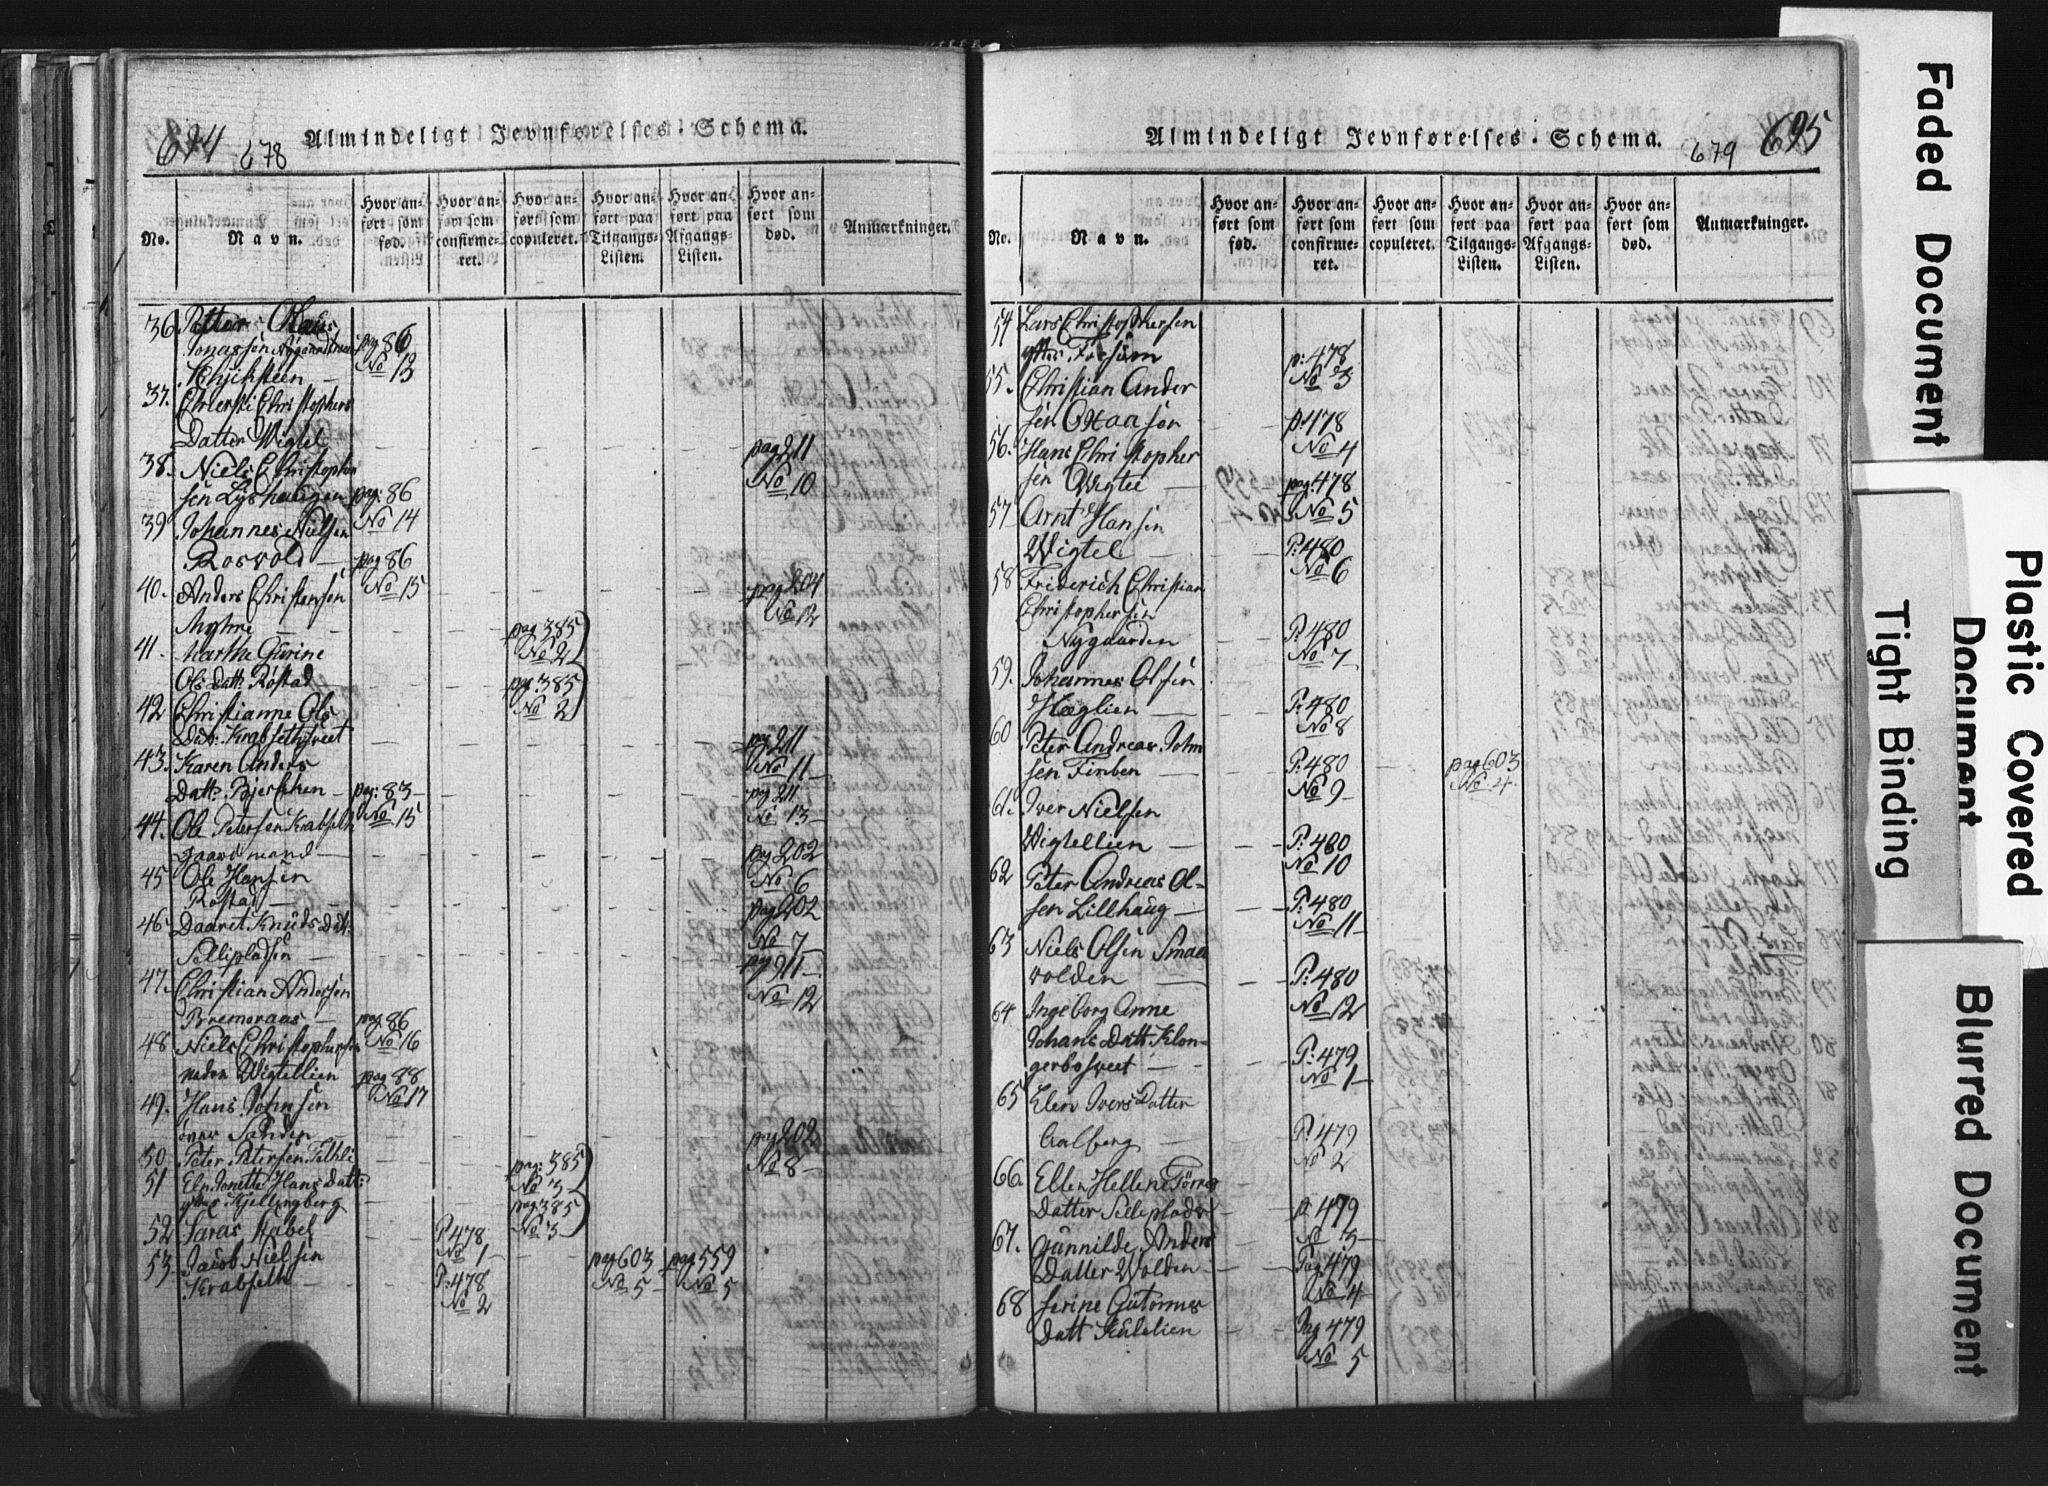 694 678 Almindeligt Jevnførelses-Schema.
No.
Navn.
Hvor anført som fød.
Hvor anført som confirmeret.
Hvor anført som copuleret.
Hvor anført paa Tilgangs-Listen.
Hvor anført paa Afgangs-Listen.
Hvor anført som død.
Anmærkninger.
36 Petter Olaus
Jonassen Nygaards pag 86
No 13
37. Chiersti Christophers
Datter Wigtel pag 211
No 10
38. Niels Christopher
sen Lysthaugen pag: 86
No 14
39 Johannes Nielsen
Rosvold pag 86
No 15
40. Anders Christensen
Myhre pag 204
No 12
41. Marthe Gurine pag 385
No 2
Ols Datt: Røstad pag. 385
No 2
42 Christianne Ols
Dat: Krabsethsveet pag 211
No 11
43. Karen Anders
Datt: Bjerkhen pag: 83 pag 211
No 15 No 13
44. Ole Petersen Krabseth
gaardmand pag 202
No 6
45 Ole Hansen
Rostad pag 202
No 7
46. Daaret Knuds Dat:
Selliepladsen pag 211
No 12
47. Christian Andersen
Bremoraas pag 86
No 16
48 Niels Christophersen
neden Wigtellien pag 88
No 17
49. Hans Johnsen
øver Sanden pag 202
No 8
50 Peter Petersen Fethli pag: 385
No 3
51 Elen Jonette Hans Datt:
ytter Kjellingberg pag 385
No 3
52 Saras Habel P. 478
No 1
53. Jacob Nielsen
Krabseth P. 478 pag 603 pag 559
No 2 No 5 No 5
Almindeligt Jevnførelses-Schema. 679 695
No.
Navn.
Hvor anført som fød.
Hvor anført som confirmeret.
Hvor anført som copuleret.
Hvor anført paa Tilgangs-Listen.
Hvor anført paa Afgangs-Listen.
Hvor anført som død.
Anmærkninger.
54 Lars Christophersen
ytter Forsum p: 478
No 3
55. Christian Ander
sen p 478
No 4
56. Hans Christopher
sen Wigtel pag: 478
No 5
57 Arnt Hansen
Wigtel P: 480
No 6
58 Friderich Christian
Christophersen
Nygaarden P: 480
No 7
59. Johannes Olsen
Hæglien P: 480
No 8
60 Peter Andreas John
sen Finben P: 480 pag 603
No 9 No 4
61. Iver Nielsen
Wigtellien P: 480
No 10
62 Peter Andreas Ol-
sen Lillhaug P: 480
No 11
63 Niels Olsen Smaa
volden P: 480
No 12
64 Ingeborg Anne
Johans Datt: Klon-
gerbosveet P: 479
No 1
65 Elen Ivers Datter
Aalberg P: 479
No 2
66. Ellen Hellene Tørres
Datter Selleplads p. 479
No 3
67. Gunnilde Anders
Datter Wolden Pag 479
No 4
68 Serine Guttorms
Datt Kulslien Pag 479
No 5
Faded Document
Plastic Covered
Document
Tight Binding
Blurred Document